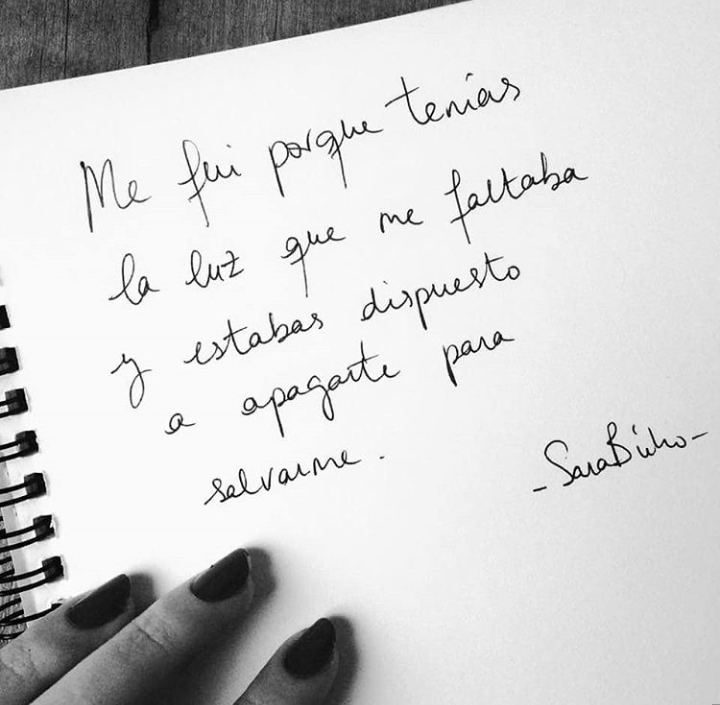 Me fui porque tenías
la luz que me faltaba
y estabas dispuesto
a apagarte para
salvarme.
-Sara Búho-